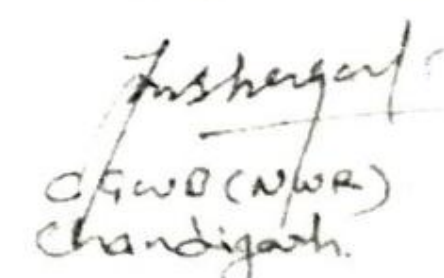 CGWB (NWR)
Chandigarh.